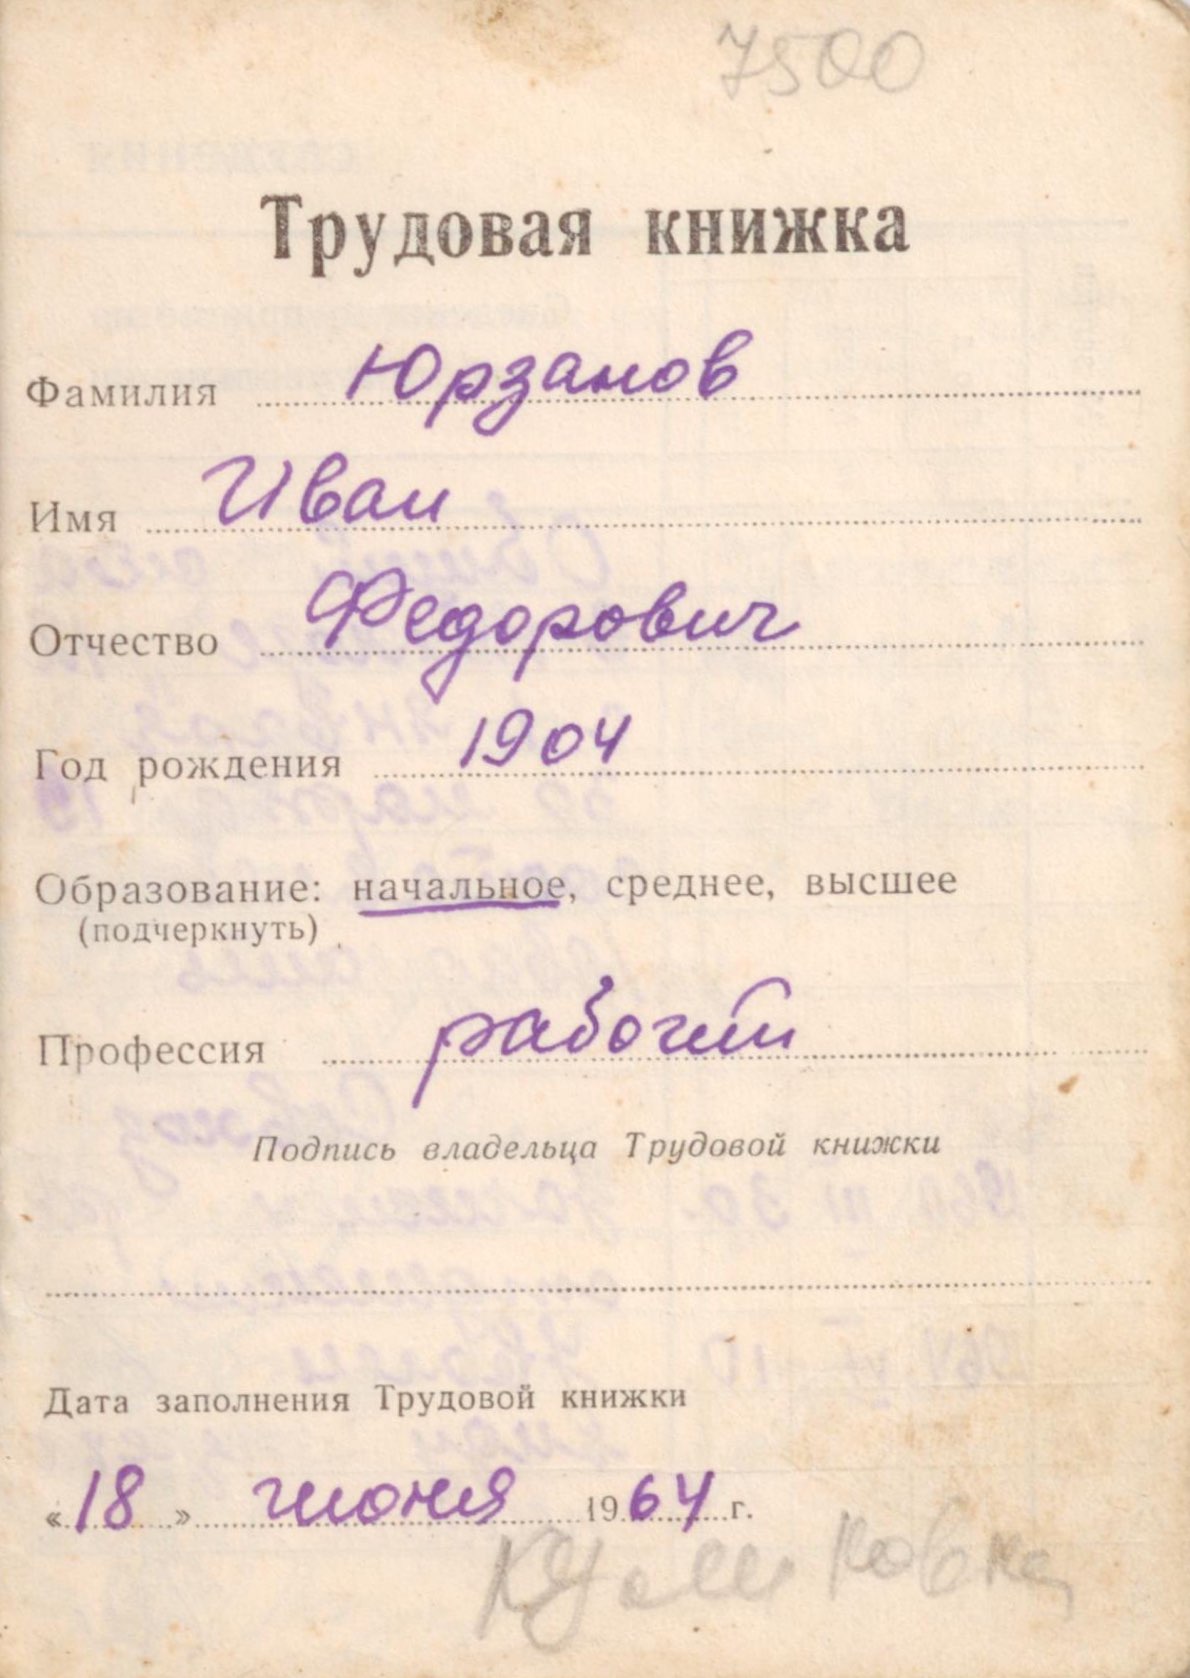 7500
Трудовая книжка
Фамилия Юрзанов
Имя Иван
Отчество Федорович
Год рождения 1904
Образование: начальное, среднее, высшее
(подчеркнуть)
Профессия рабочий
Подпись владельца Трудовой книжки
Дата заполнения Трудовой книжки
«18» июня 1964 г.